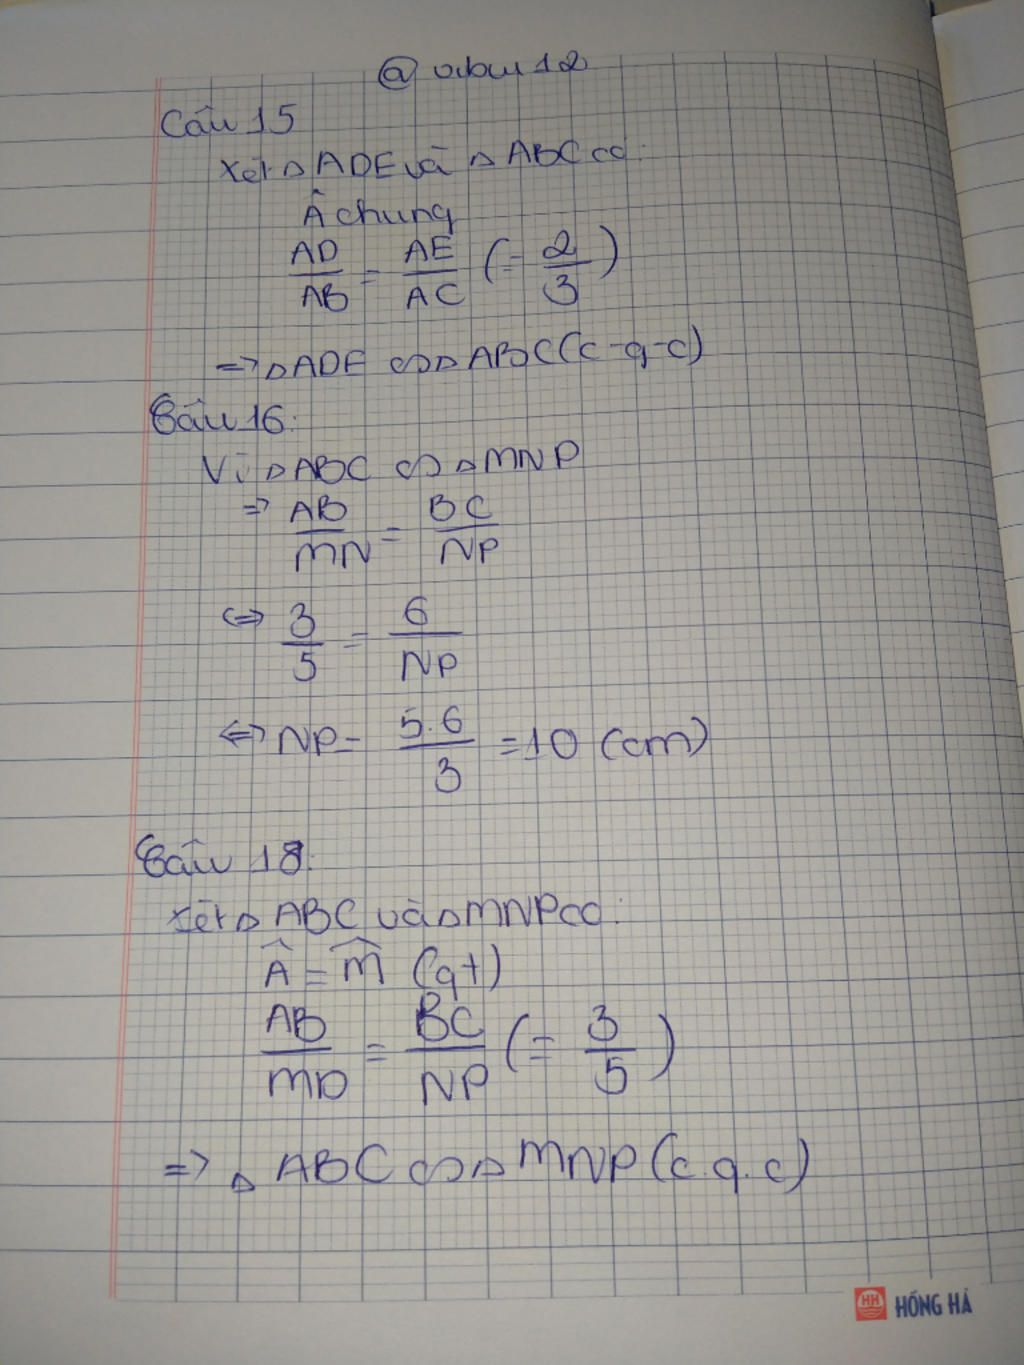 Câu 15
Xét Δ ADE và Δ ABC có:
Â chung
AD/AB = AE/AC (= 2/3)
=> Δ ADE ∽ Δ ABC (c-g-c)
Câu 16:
Vì Δ ABC ∽ Δ MNP
=> AB/MN = BC/NP
<=> 3/5 = 6/NP
<=> NP = 5.6/3 = 10 (cm)
Câu 18:
Xét Δ ABC và Δ MNP có:
Â = M̂ (gt)
AB/MD = BC/NP (= 3/5)
=> Δ ABC ∽ Δ MNP (c.g.c)
HH HỒNG HÀ